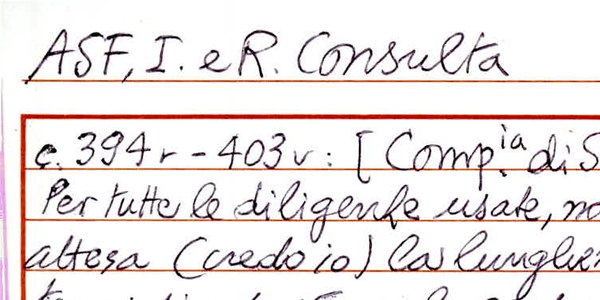 ASF, I. e R. Consulta
c. 394r - 403v: [Comp.ia di S
Per tutte le diligenze usate, no
attesa (credo io) la lunghez